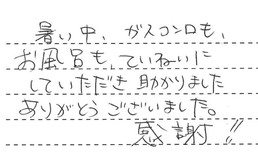 暑い中、ガスコンロも、
お風呂も、ていねいに
していただき助かりました
ありがとうございました。
感謝!!